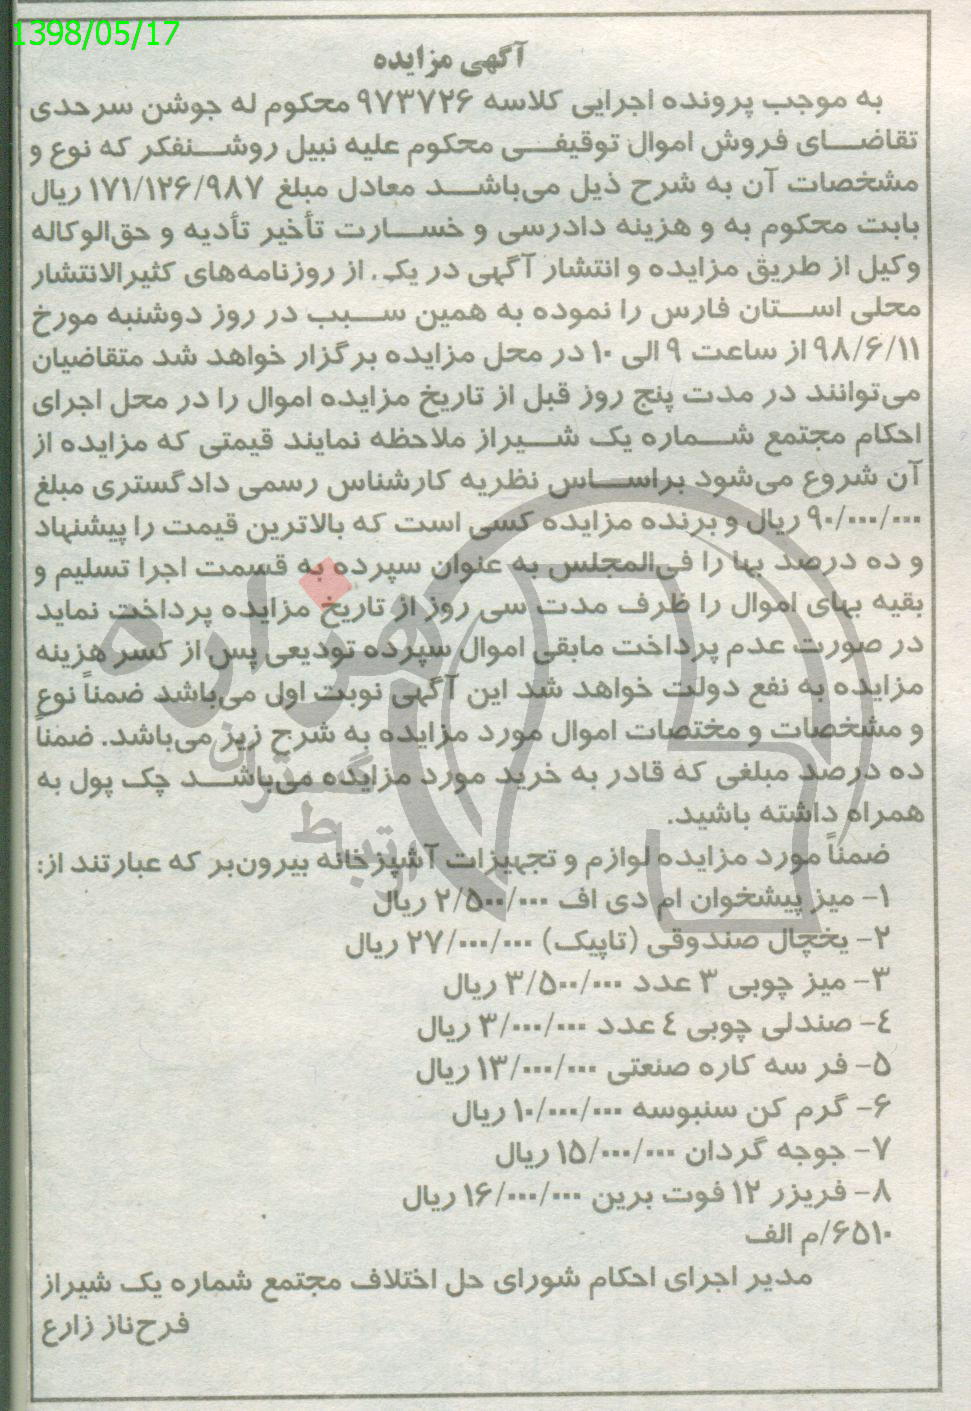 1398/05/17
آگهی مزایده
به موجب پرونده اجرایی کلاسه ۹۷۳۷۲۶ محکوم له جوشن سرحدی
تقاضای فروش اموال توقیفی محکوم علیه نبیل روشنفکر که نوع و
مشخصات آن به شرح ذیل می‌باشد معادل مبلغ ۱۷۱/۱۲۶/۹۸۷ ریال
بابت محکوم به و هزینه دادرسی و خسارت تأخیر تأدیه و حق‌الوکاله
وکیل از طریق مزایده و انتشار آگهی در یکی از روزنامه‌های کثیرالانتشار
محلی استان فارس را نموده به همین سبب در روز دوشنبه مورخ
۹۸/۶/۱۱ از ساعت ۹ الی ۱۰ در محل مزایده برگزار خواهد شد متقاضیان
می‌توانند در مدت پنج روز قبل از تاریخ مزایده اموال را در محل اجرای
احکام مجتمع شماره یک شیراز ملاحظه نمایند قیمتی که مزایده از
آن شروع می‌شود براساس نظریه کارشناس رسمی دادگستری مبلغ
۹۰/۰۰۰/۰۰۰ ریال و برنده مزایده کسی است که بالاترین قیمت را پیشنهاد
و ده درصد بها را فی‌المجلس به عنوان سپرده به قسمت اجرا تسلیم و
بقیه بهای اموال را ظرف مدت سی روز از تاریخ مزایده پرداخت نماید
در صورت عدم پرداخت مابقی اموال سپرده تودیعی پس از کسر هزینه
مزایده به نفع دولت خواهد شد این آگهی نوبت اول می‌باشد ضمناً نوع
و مشخصات و مختصات اموال مورد مزایده به شرح زیر می‌باشد. ضمناً
ده درصد مبلغی که قادر به خرید مورد مزایده می‌باشد چک پول به
همراه داشته باشید.
ضمناً مورد مزایده لوازم و تجهیزات آشپزخانه بیرون‌بر که عبارتند از:
۱- میز پیشخوان ام دی اف ۲/۵۰۰/۰۰۰ ریال
۲- یخچال صندوقی (تاپیک) ۲۷/۰۰۰/۰۰۰ ریال
۳- میز چوبی ۳ عدد ۳/۵۰۰/۰۰۰ ریال
٤- صندلی چوبی ٤ عدد ۳/۰۰۰/۰۰۰ ریال
۵- فر سه کاره صنعتی ۱۳/۰۰۰/۰۰۰ ریال
۶- گرم کن سنبوسه ۱۰/۰۰۰/۰۰۰ ریال
۷- جوجه گردان ۱۵/۰۰۰/۰۰۰ ریال
۸- فریزر ۱۲ فوت برین ۱۶/۰۰۰/۰۰۰ ریال
۶۵۱۰/م الف
مدیر اجرای احکام شورای حل اختلاف مجتمع شماره یک شیراز
فرح‌ناز زارع
هزاره
ارتباط گستران